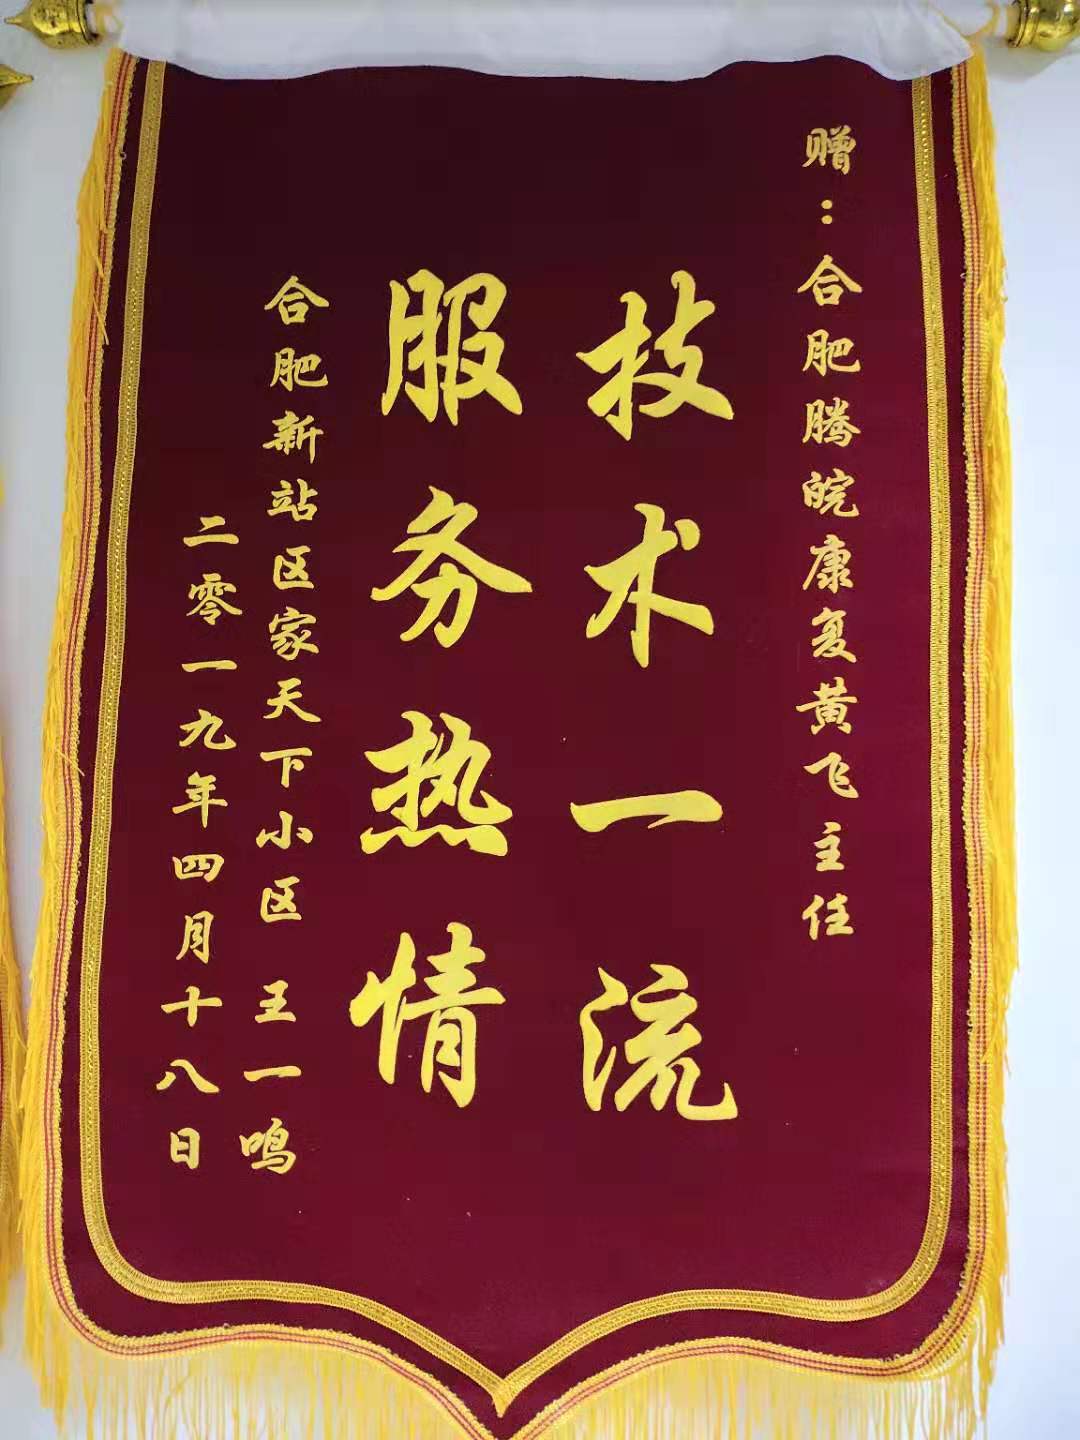 赠：合肥腾皖康复黄飞主任
技术一流
服务热情
合肥新站区家天下小区 王一鸣
二零一九年四月十八日